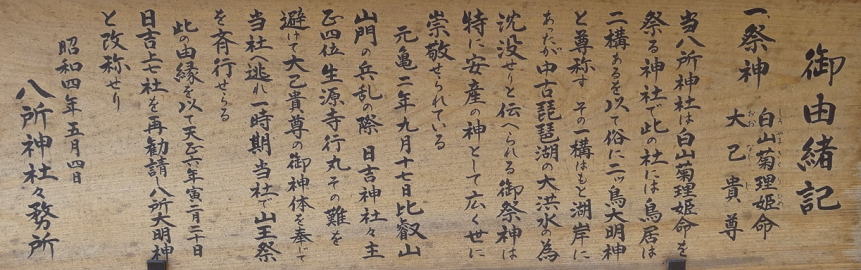 御由緒記
一、祭神
白山菊理姫命
大己貴尊
当八所神社は白山菊理姫命を
祭る神社で此の社には鳥居は
二構あるを以て俗に二ッ鳥大明神
と尊称す その一構はもと湖岸に
あったが中古琵琶湖の大洪水の為
沈没せりと伝へられる御祭神は
特に安産の神として広く世に
崇敬せられている
元亀二年九月十七日比叡山
山門の兵乱の際 日吉神社々主
正四位 生源寺行丸その難を
避けて大己貴尊の御神体を奉じて
当社へ逃れ一時期当社で山王祭
を斉行せらる
此の由縁を以て天正六年寅二月二十日
日吉上七社を再勧請し八所大明神
と改称せり
昭和四年五月四日
八所神社々務所